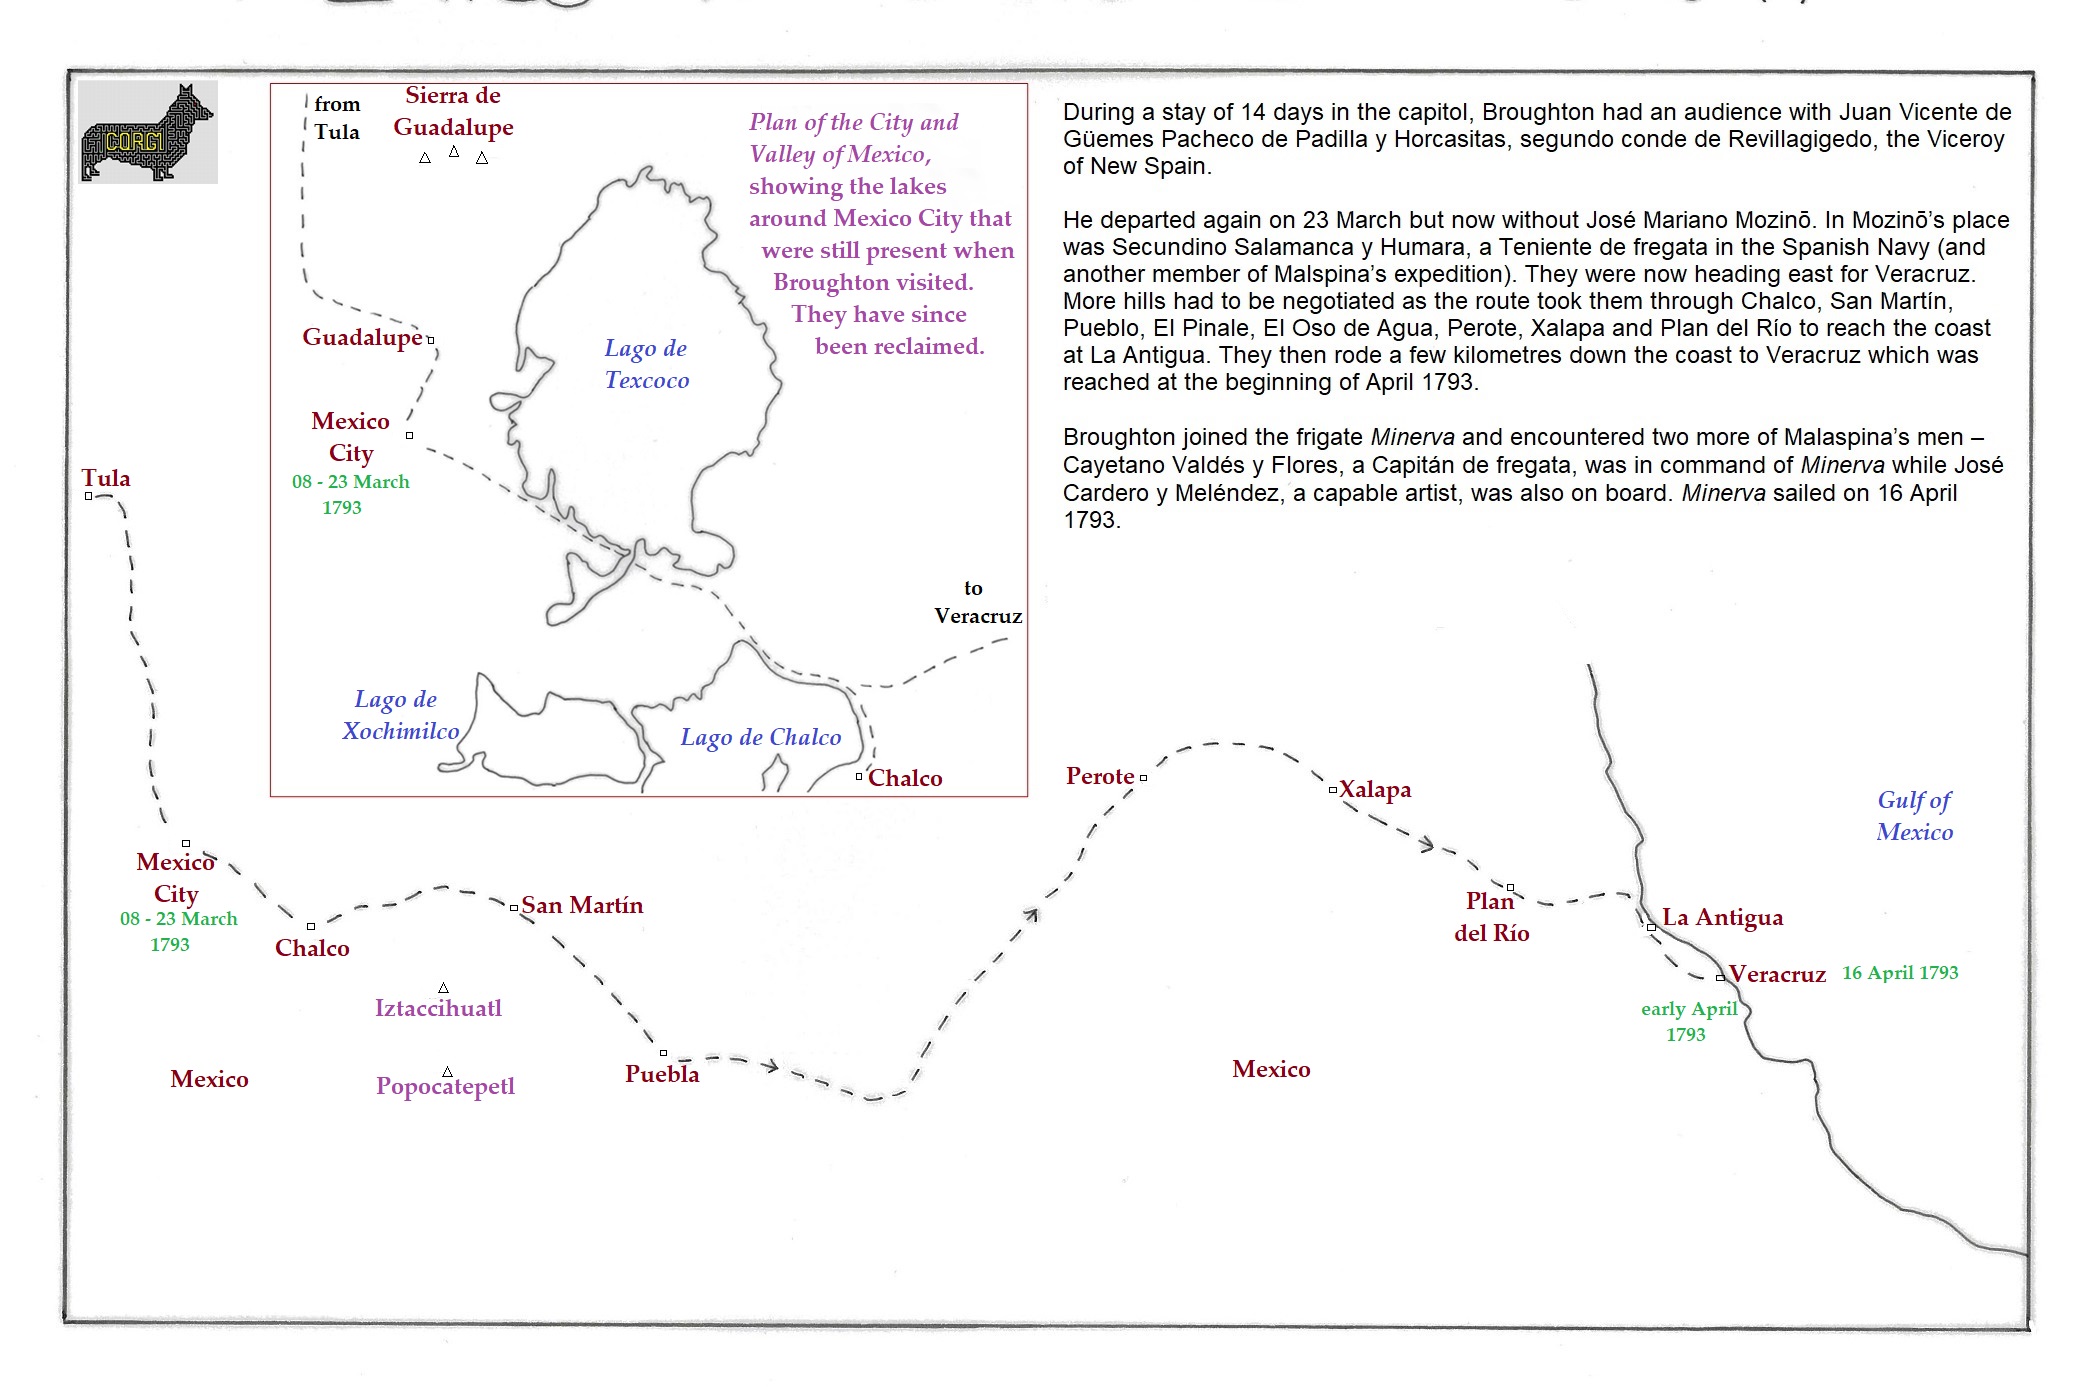 CORGI
from
Tula
Sierra de
Guadalupe
Plan of the City and
Valley of Mexico,
showing the lakes
around Mexico City that
were still present when
Broughton visited.
They have since
been reclaimed.
Guadalupe
Lago de
Texcoco
Mexico
City
08 - 23 March
1793
to
Veracruz
Lago de
Xochimilco
Lago de Chalco
Chalco
During a stay of 14 days in the capitol, Broughton had an audience with Juan Vicente de
Güemes Pacheco de Padilla y Horcasitas, segundo conde de Revillagigedo, the Viceroy
of New Spain.
He departed again on 23 March but now without José Mariano Mozinō. In Mozinō’s place
was Secundino Salamanca y Humara, a Teniente de fregata in the Spanish Navy (and
another member of Malspina’s expedition). They were now heading east for Veracruz.
More hills had to be negotiated as the route took them through Chalco, San Martín,
Pueblo, El Pinale, El Oso de Agua, Perote, Xalapa and Plan del Río to reach the coast
at La Antigua. They then rode a few kilometres down the coast to Veracruz which was
reached at the beginning of April 1793.
Broughton joined the frigate Minerva and encountered two more of Malaspina’s men –
Cayetano Valdés y Flores, a Capitán de fregata, was in command of Minerva while José
Cardero y Meléndez, a capable artist, was also on board. Minerva sailed on 16 April
1793.
Tula
Mexico
City
08 - 23 March
1793
Chalco
San Martín
Iztaccihuatl
Popocatepetl
Mexico
Puebla
Perote
Xalapa
Gulf of
Mexico
Plan
del Río
La Antigua
Veracruz
16 April 1793
early April
1793
Mexico